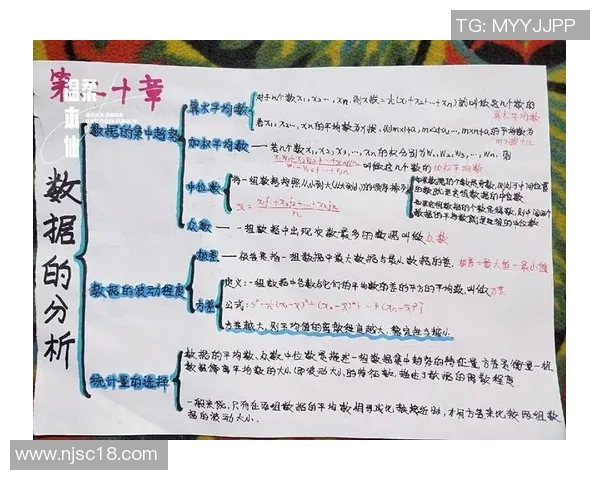 TG: MYYJJPP
第二十章
温柔本仙
数据的分析
数据的集中趋势
算术平均数
对于n个数x₁,x₂…,xn,则x拔=1/n(x₁+x₂+…+xn)就叫做这n个数的
算术平均数
若x₁,x₂…,xn的平均数为x拔,则mx₁+a,mx₂+a…,mxn+a的平均数为
mx拔+a
加权平均数
若n个数x₁,x₂,x₃,…,xn的权分别为w₁,w₂,w₃,…,wn,则
x₁w₁+x₂w₂+…+xnwn/w₁+w₂+…+wn 叫做这n个数的加权平均数
中位数
将一组数据按照从小到大(从大到小)的顺序排列
如果数据的个数是奇数,则处于中间位置
的数就是这组数据的中位数
如果这组数据的个数是偶数,则中间两个
数据的平均数就是这组的中位数
x̄=x₁f₁+x₂f₂+…+xkfk/n
众数
一组数据中出现次数最多的数据叫做众数
数据的波动程度
极差
极差是指一组数据中最大数据与最小数据的差.
极差=最大值-最小值
方差
定义:一组数据中各数与它们的平均数的差的平方的平均数,叫做方差
公式:s²=1/n(x₁-x̄)²+(x₂-x̄)²+…+(xn-x̄)²]
方差越大,则平均值的离散程度越大,稳定性也越小
统计量的选择
数据的平均数,众数中位数是描述一组数据集中趋势的特征量,方差是衡量一组
数据偏离平均数的大小(即波动大小)的特征数,描述了数据的离散程度
一般来说,只有在两组数据的平均数相等或比较接近时,才用方差来比较两组数
据的波动大小.
www.njsc18.com